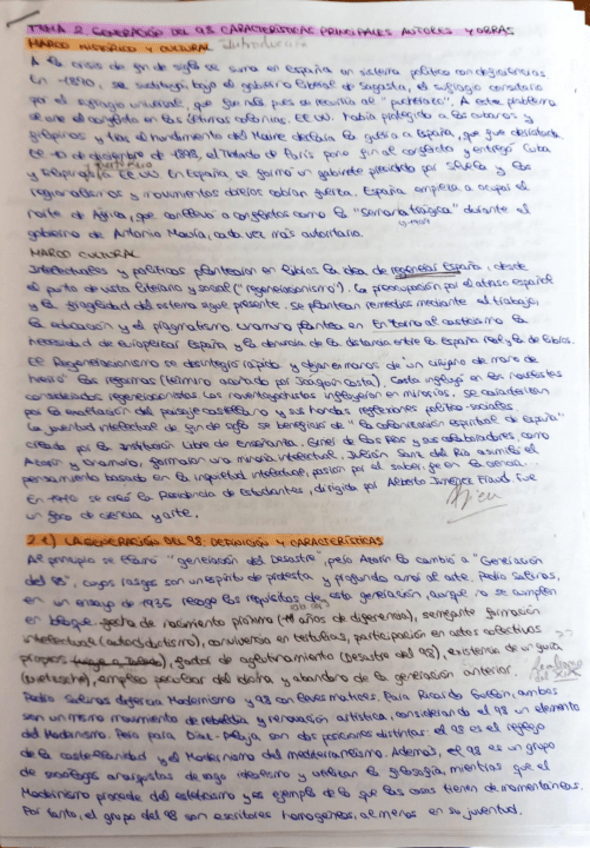 TEMA 2. GENERACIÓN DEL 98. CARACTERÍSTICAS PRINCIPALES. AUTORES Y OBRAS
MARCO HISTÓRICO Y CULTURAL Introducción
A la crisis de fin de siglo se suma en España un sistema político con deficiencias.
En 1890, se sustituyó, bajo el gobierno liberal de Sagasta, el sufragio censitario
por el sufragio universal, que fue pues se recurría al "pucherazo". A este problema
se une el conflicto en las últimas colonias. EE UU. había protegido a los cubanos y
filipinos y tras el hundimiento del Maine declara la guerra a España, que fue derrotada.
El 10 de diciembre de 1898, el Tratado de París pone fin al conflicto y entregó Cuba
y Filipinas a EE UU. En España, se formó un gabinete presidido por Silvela y los
Puerto Rico
regionalismos y movimientos obreros cobran fuerza. España empieza a ocupar el
norte de África, que conllevó a conflictos como la "Semana trágica" durante el
gobierno de Antonio Maura, cada vez más autoritario.
MARCO CULTURAL
Intelectuales y políticos plantearon en libros la idea de regenerar España, desde
el punto de vista literario y social ("regeneracionismo"). La preocupación por el atraso español
y la fragilidad del sistema sigue presente. Se plantean remedios mediante el trabajo,
la educación y el pragmatismo. Unamuno plantea en En torno al casticismo la
necesidad de europeizar España y la denuncia de la distancia entre la España real y la de libros.
El Regeneracionismo se desintegró rápido y dejaron manos de "un cirujano de mano de
hierro" las reformas (término acuñado por Joaquín Costa). Costa influyó en los
considerados regeneracionistas. Los noventayochistas influyeron en minorías. Se caracterizan
por la exaltación del paisaje castellano y sus hondas reflexiones político-sociales.
La juventud intelectual de fin de siglo se benefició de "la colonización espiritual de España"
creada por la Institución Libre de Enseñanza. Giner de los Ríos y sus colaboradores como
Azorín y Unamuno, formaron una minoría intelectual. Julián Sanz del Río asimiló el
pensamiento basado en la inquietud intelectual, pasión por el saber, fe en la ciencia...
En 1910 se creó la Residencia de Estudiantes, dirigida por Alberto Jiménez Fraud. Fue
un foco de ciencia y arte.
2.1) LA GENERACIÓN DEL 98: DEFINICIÓN Y CARACTERÍSTICAS
Al principio se llamó "generación del Desastre", pero Azorín la cambió a "Generación
del 98", cuyos rasgos son un espíritu de protesta y profundo amor al arte. Pedro Salinas,
en un ensayo de 1935 recoge los requisitos de esta generación, aunque no se cumplen
en bloque: fecha de nacimiento próxima (11 años de diferencia), semejante formación
intelectual (autodidactismo), convivencia en tertulias, participación en actos colectivos
propios, factor de aglutinamiento (Desastre del 98), existencia de un guía
(Nietzsche), empleo peculiar del idioma y abandono de la generación anterior.
Pedro Salinas diferencia Modernismo y 98 con claves matrices. Para Ricardo Gullón, ambas
son un mismo movimiento de rebeldía y renovación artística, considerando el 98 un elemento
del Modernismo. Pero para Díaz-Plaja son dos posiciones distintas: el 98 es el reflejo
de la castellanidad y el Modernismo del mediterraneísmo. Además, el 98 es un grupo
de sociólogos anarquistas de vago idealismo y utilizan la filosofía, mientras que el
Modernismo procede del esteticismo y es ejemplo de lo que las cosas tienen de momentáneas.
Por tanto, el grupo del 98 son escritores homogéneos, al menos en su juventud.